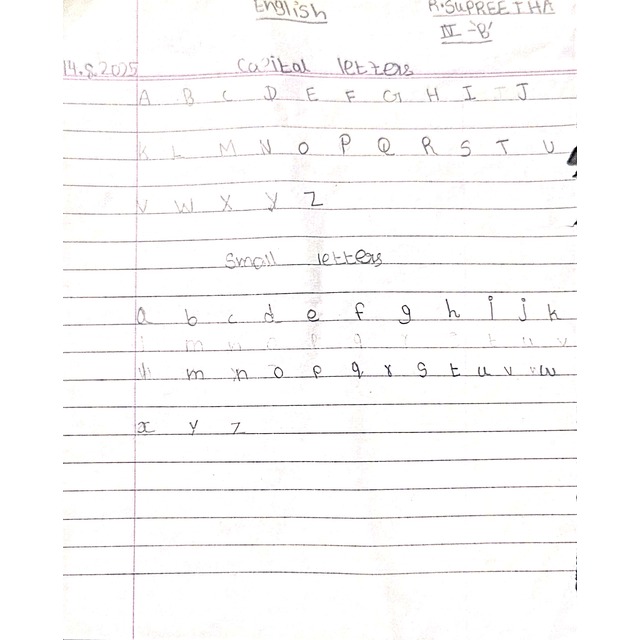 English
R.SUPREETHA
III-'B'
14.8.2025
Capital letters
A B C D E F G H I J
K L M N O P Q R S T U
V W X Y Z
Small letters
a b c d e f g h i j k
l m n o p q r s t u v w
x y z